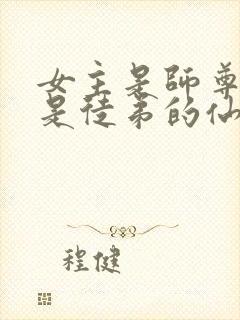 女主是師尊
是徒弟的仙
程健